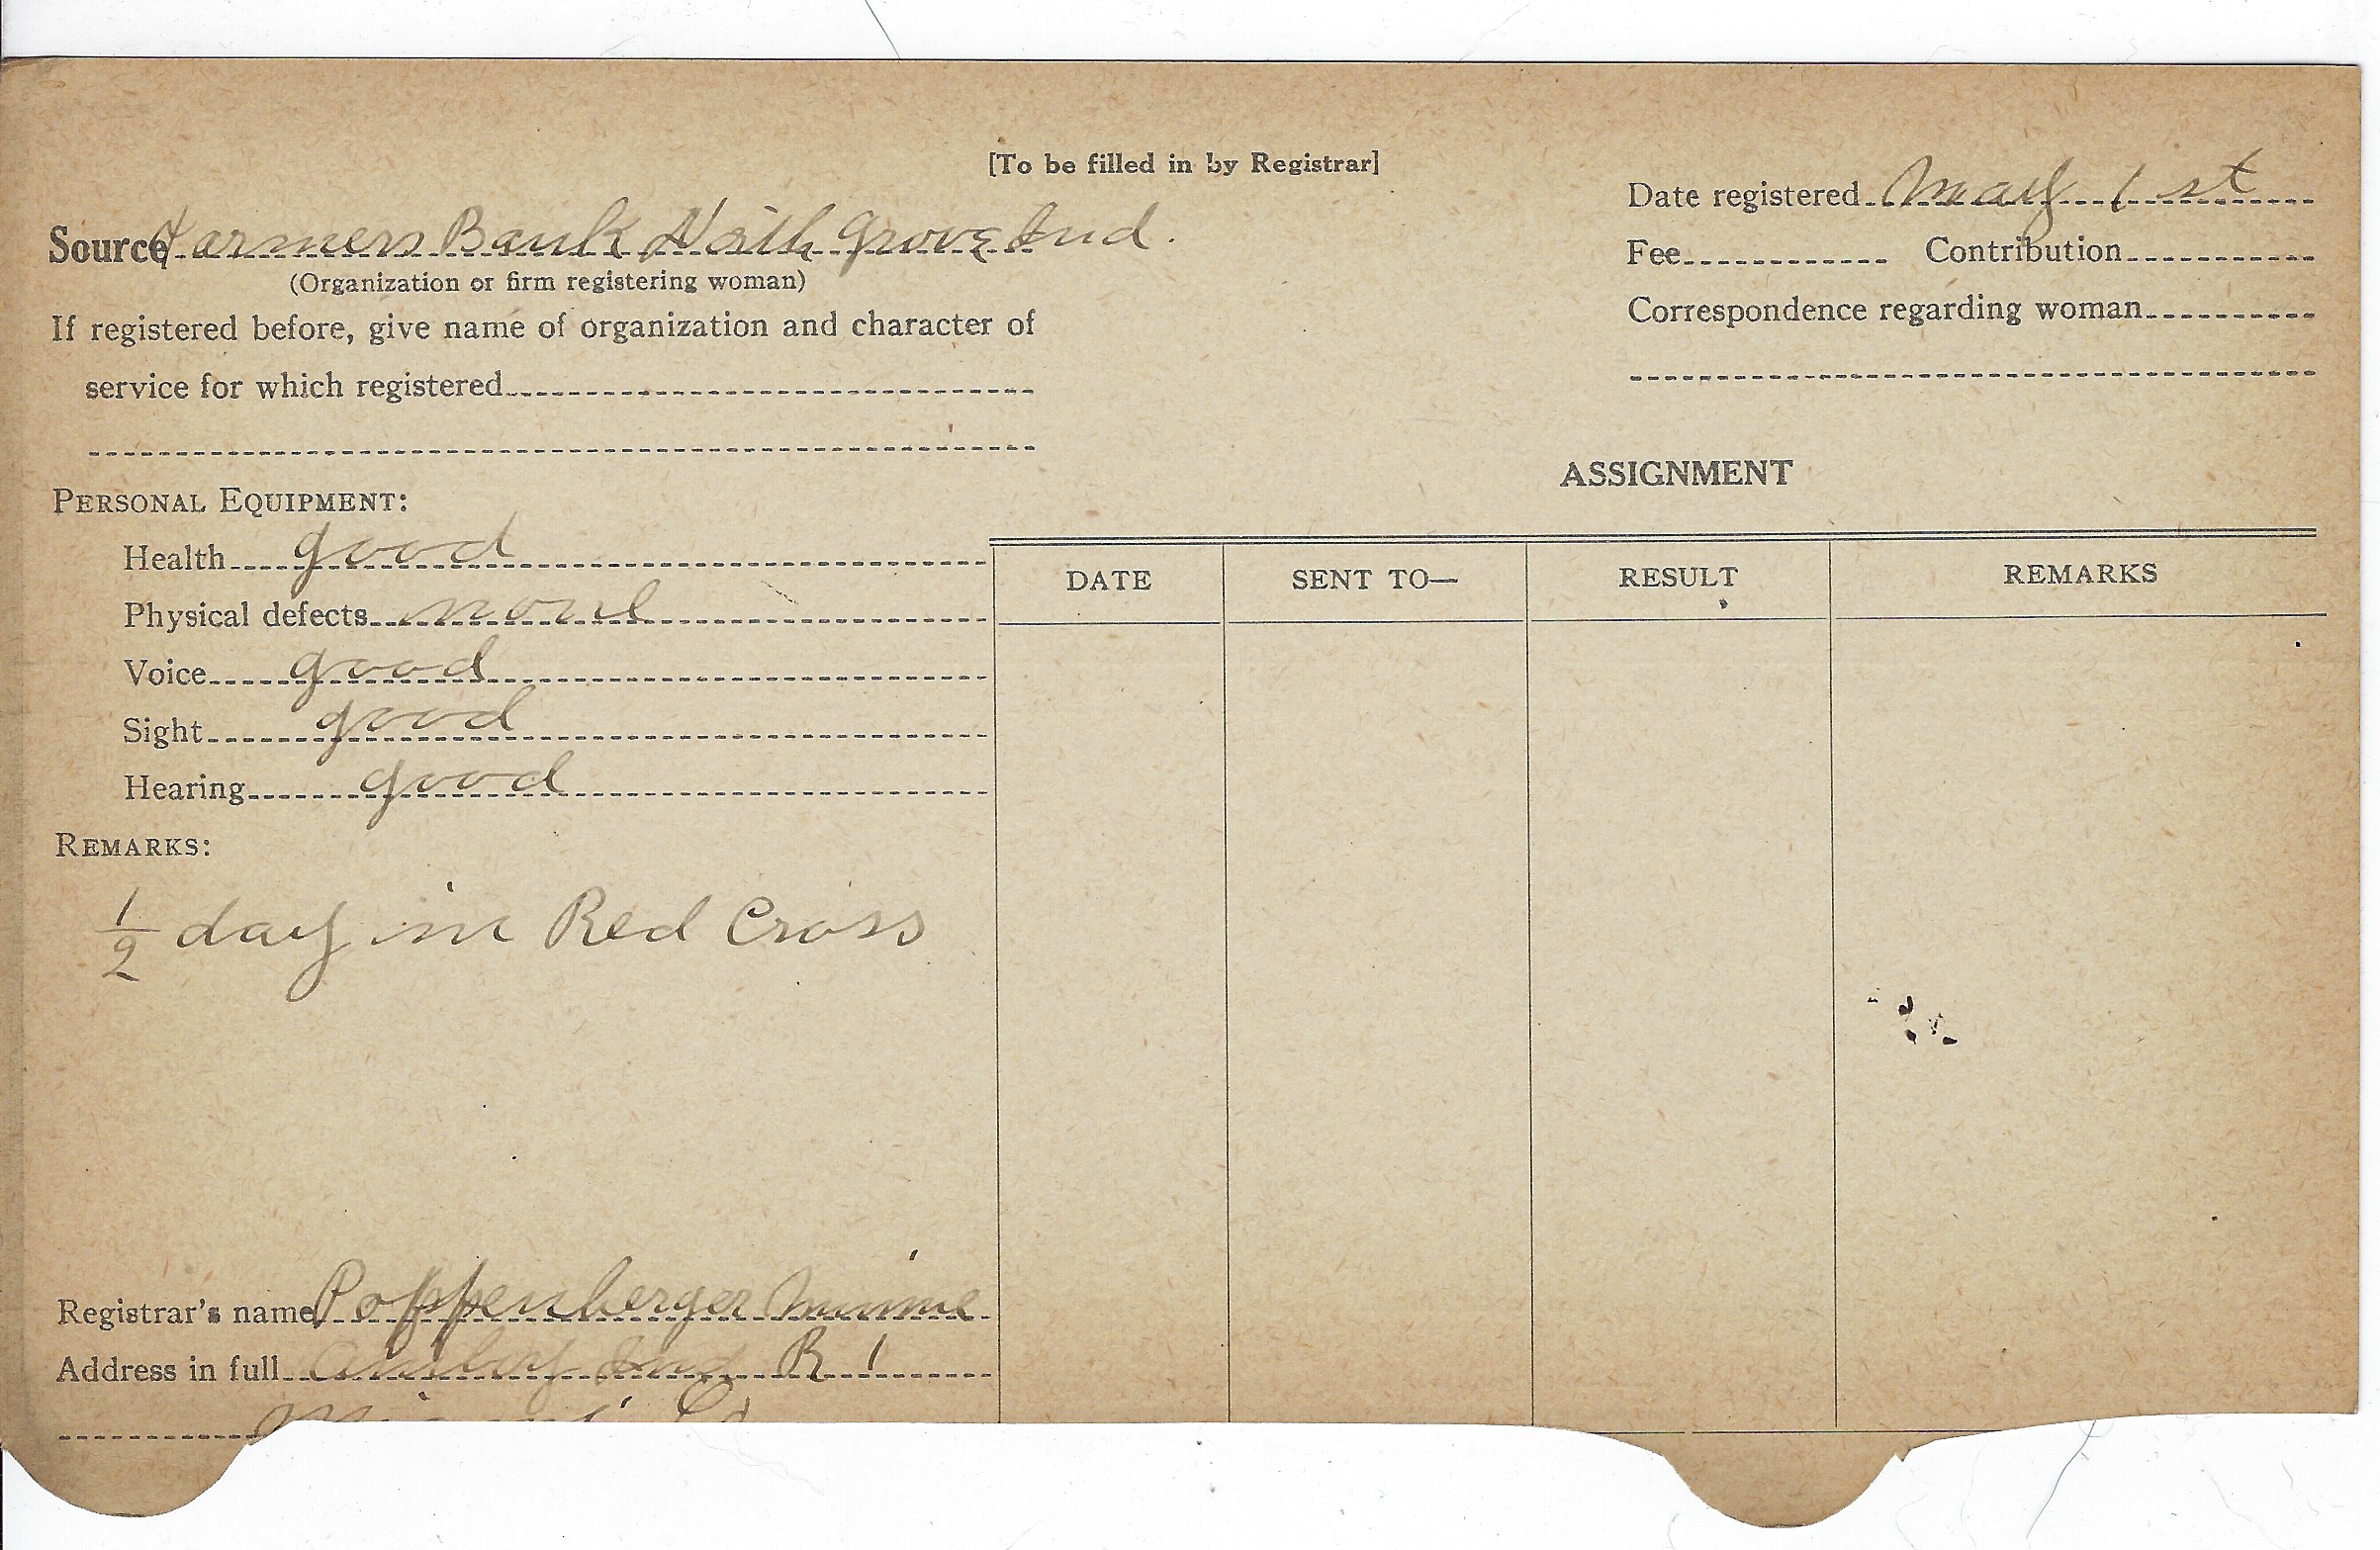 [To be filled in by Registrar]
Date registered May 1 st
Source Farmers Bank North Grove Ind.
(Organization or firm registering woman)
Fee Contribution
If registered before, give name of organization and character of
service for which registered
Correspondence regarding woman
ASSIGNMENT
PERSONAL EQUIPMENT:
Health good
Physical defects none
Voice good
Sight good
Hearing good
DATE SENT TO— RESULT REMARKS
REMARKS:
1/2 day in Red Cross
Registrar's name Poppenberger Minnie
Address in full Amboy Ind R 1